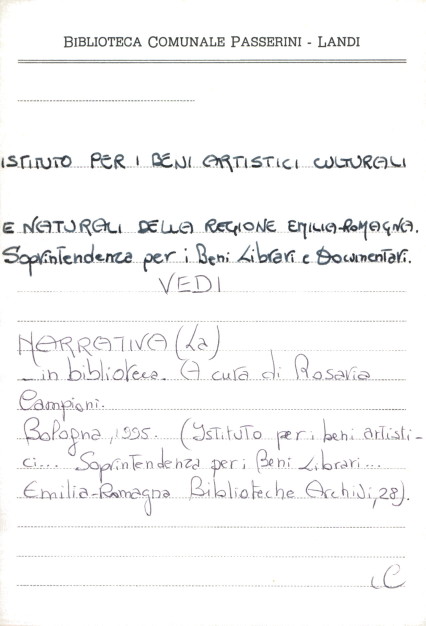 BIBLIOTECA COMUNALE PASSERINI - LANDI
ISTITUTO PER I BENI ARTISTICI CULTURALI
E NATURALI DELLA REGIONE EMILIA-ROMAGNA.
Soprintendenza per i Beni Librari e Documentari.
VEDI
NARRATIVA (La)
_ in biblioteca. A cura di Rosaria
Campioni.
Bologna, 1995. (Istituto per i beni artisti-
ci... Soprintendenza per i Beni Librari...
Emilia-Romagna Biblioteche Archivi, 28).
iC